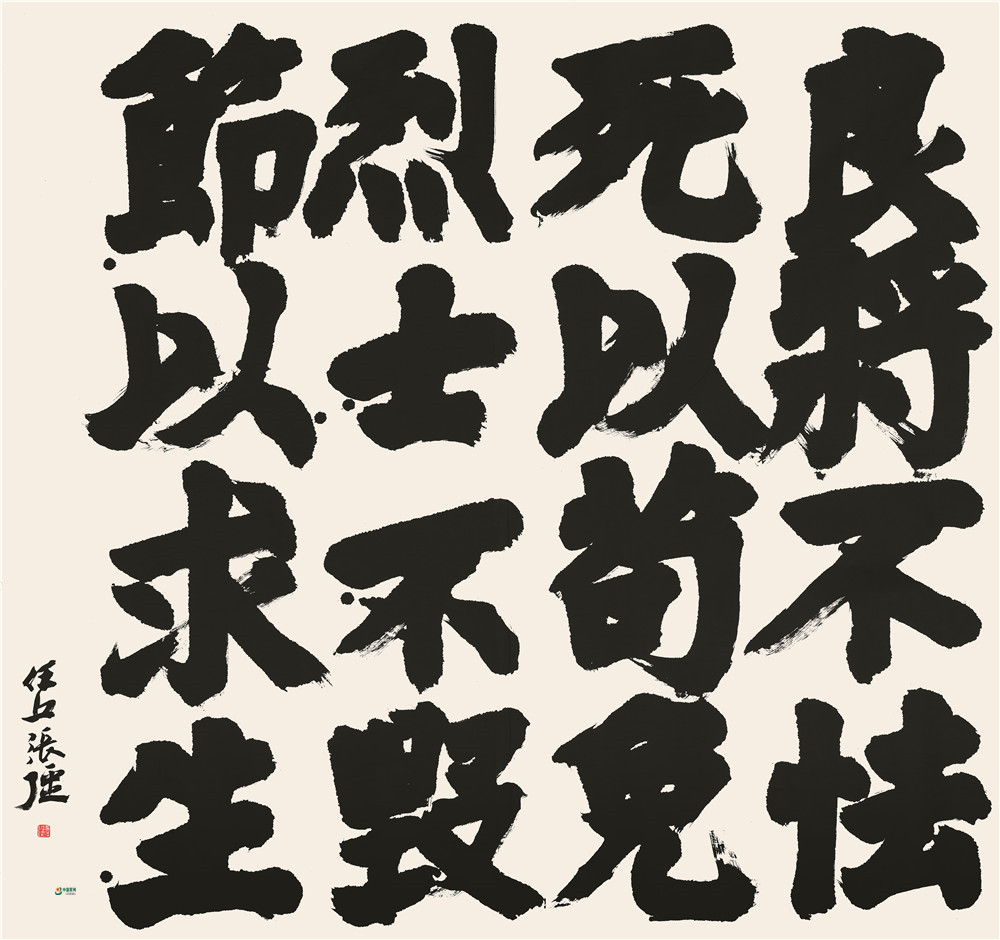 良將不怯
死以苟免
烈士不毀
節以求生
張繼